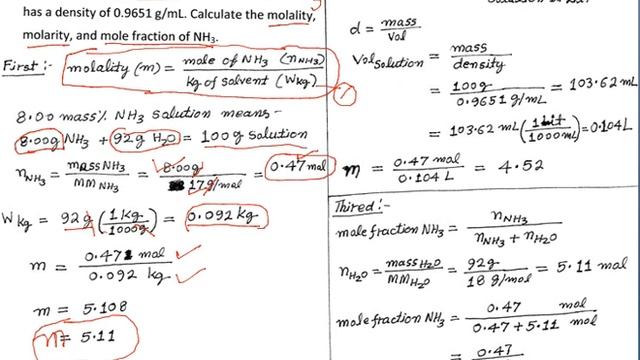 has a density of 0.9651 g/mL. Calculate the molality,
molarity, and mole fraction of NH₃.
First:-
molality (m) = mole of NH₃ (nNH₃) / kg of solvent (Wkg)
8.00 mass% NH₃ solution means-
8.00g NH₃ + 92g H₂O = 100g solution
nNH₃ = mass NH₃ / MM NH₃ = 8.00g / 17g/mol = 0.47 mol
W kg = 92g (1kg / 1000g) = 0.092 kg
m = 0.471 mol / 0.092 kg
m = 5.108
m = 5.11
d = mass / Vol
Vol solution = mass / density
= 100g / 0.9651 g/mL = 103.62 mL
= 103.62 mL (1 lit / 1000mL) = 0.104L
M = 0.47 mol / 0.104 L = 4.52
Thired:-
mole fraction NH₃ = nNH₃ / nNH₃ + nH₂O
nH₂O = mass H₂O / MM H₂O = 92g / 18 g/mol = 5.11 mol
mole fraction NH₃ = 0.47 mol / 0.47 + 5.11 mol
= 0.47